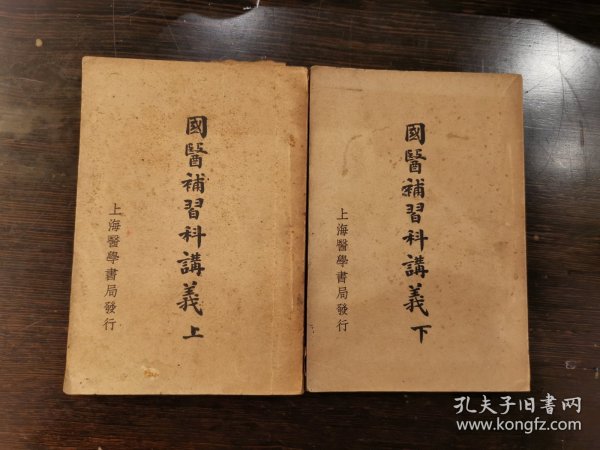 國醫補習科講義上
上海醫學書局發行
國醫補習科講義下
上海醫學書局發行
孔夫子旧书网
www.kongfz.com